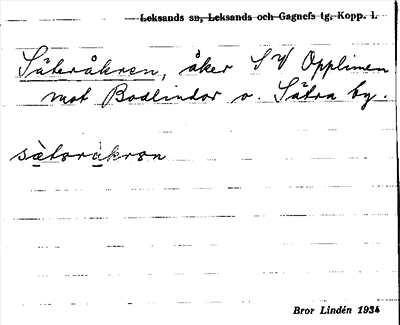 Leksands sn, Leksands och Gagnefs tg, Kopp. l.
Säteråkren, åker SV Opplimen
mot Bodlindor o. Sätra by.
sὰtəråkrən
Bror Lindén 1934